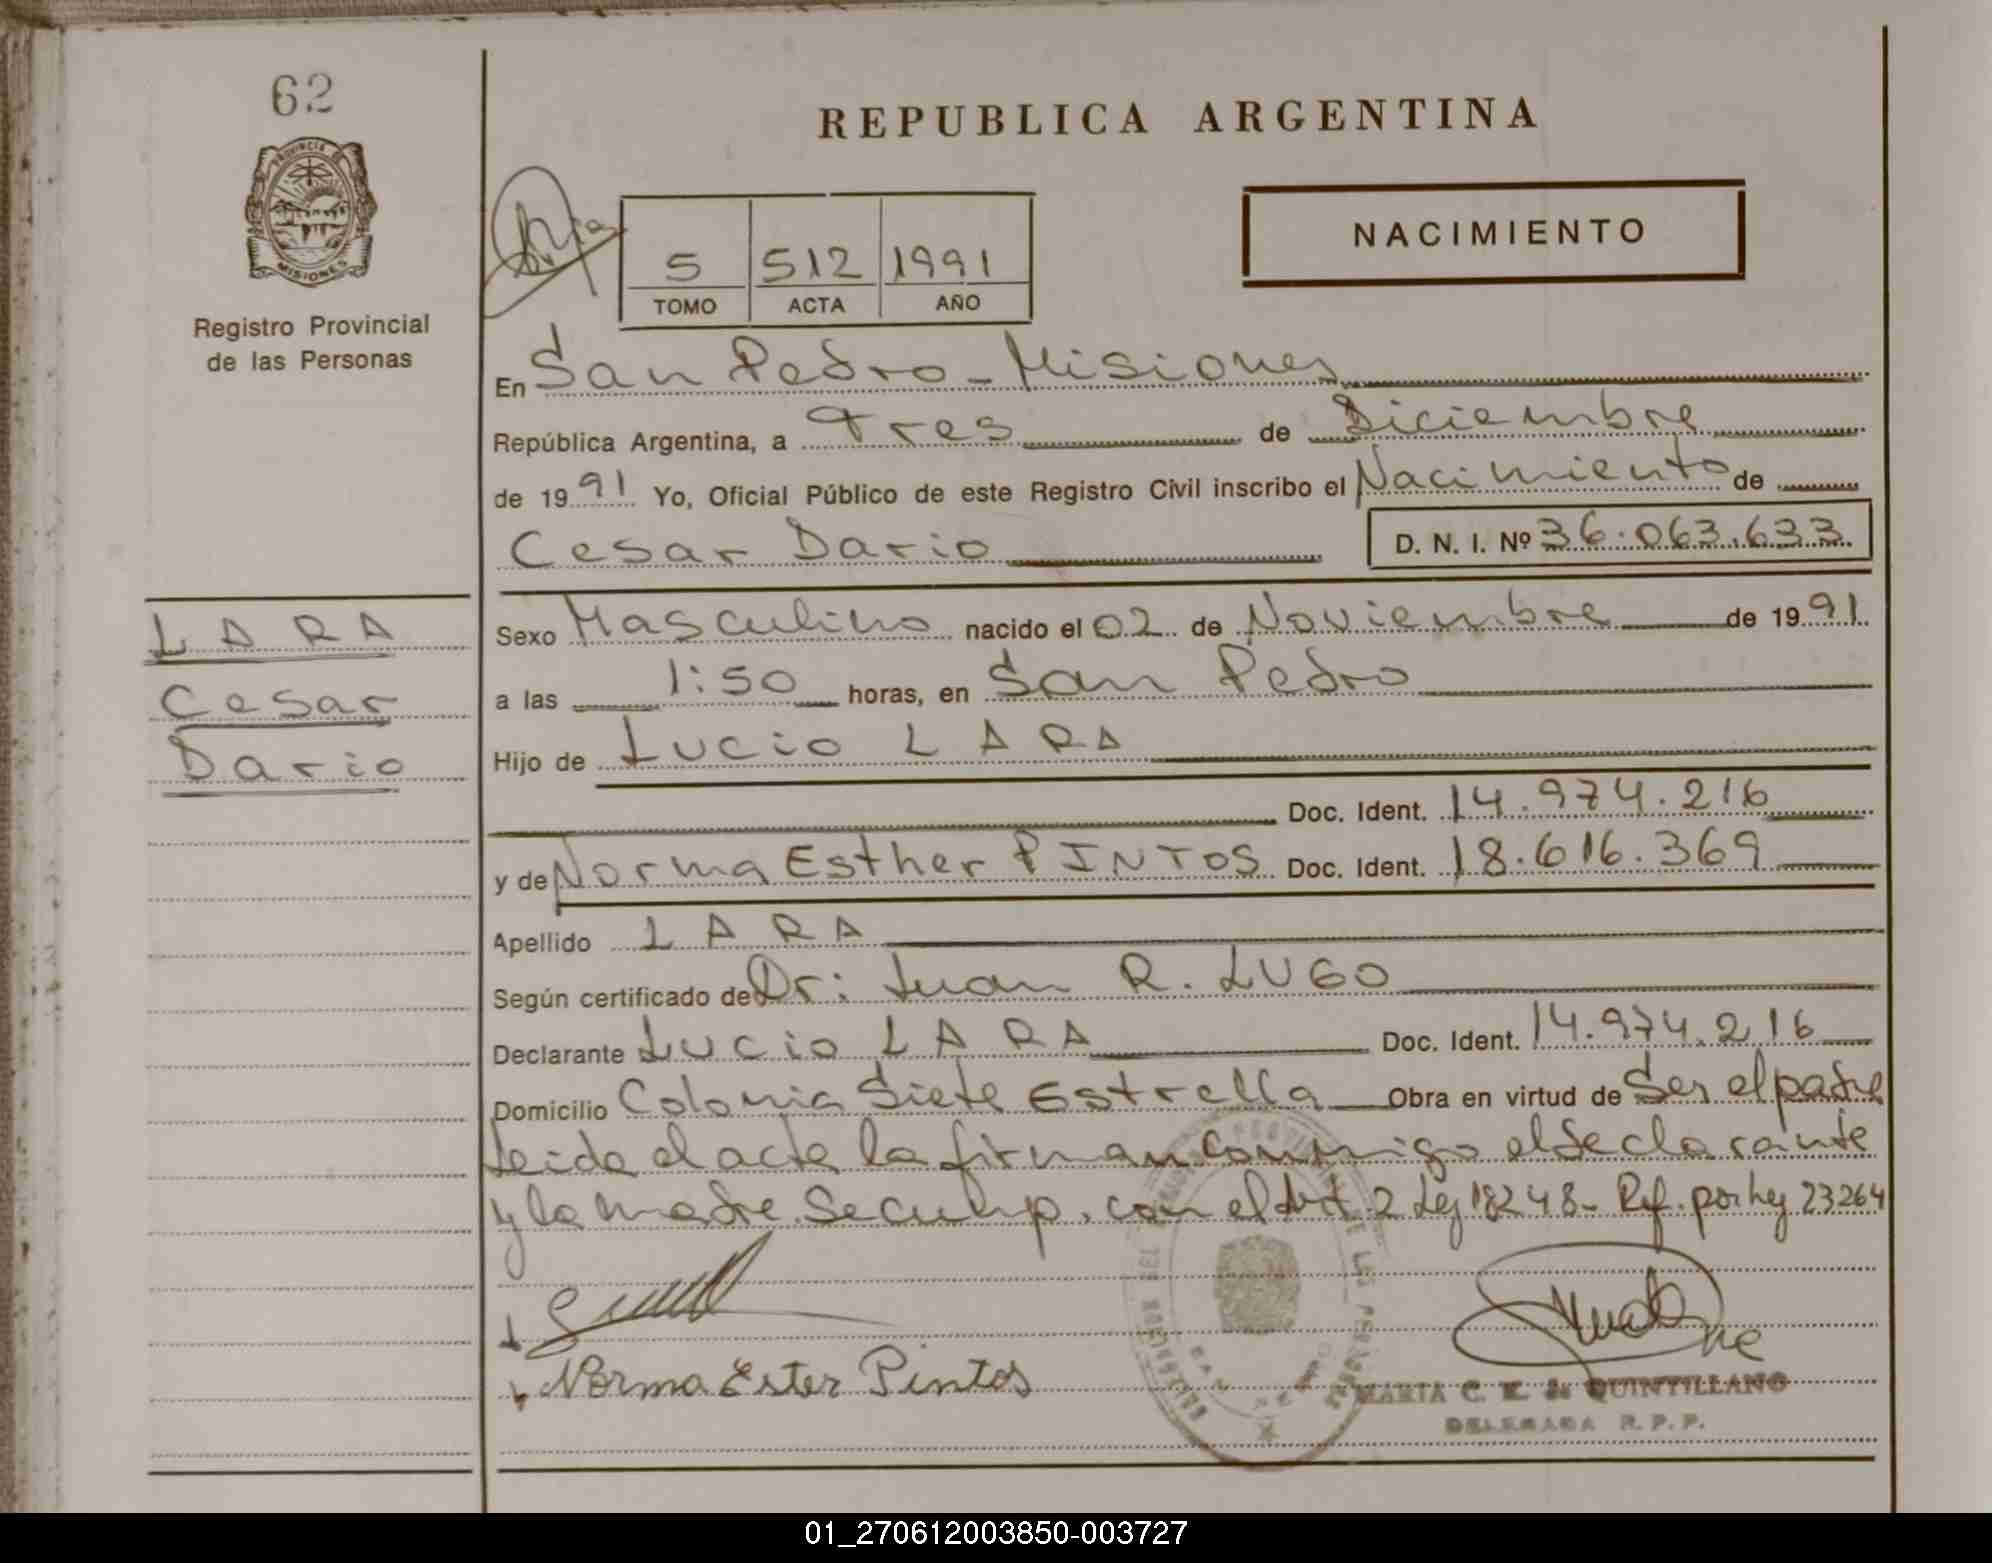 62
REPUBLICA ARGENTINA
PROVINCIA DE
MISIONES
NACIMIENTO
5 512 1991
TOMO ACTA AÑO
Registro Provincial
de las Personas
En San Pedro - Misiones
República Argentina, a Tres de Diciembre
de 1991 Yo, Oficial Público de este Registro Civil inscribo el Nacimiento de
Cesar Dario D. N. I. Nº 36.063.633
LARA
Cesar
Dario
Sexo Masculino nacido el 02 de Noviembre de 1991
a las 1:50 horas, en San Pedro
Hijo de Lucio LARA
Doc. Ident. 14.974.216
y de Norma Esther PINTOS Doc. Ident. 18.616.369
Apellido LARA
Según certificado de Dr: Juan R. LUGO
Declarante Lucio LARA Doc. Ident. 14.974.216
Domicilio Colonia Siete Estrella Obra en virtud de Ser el padre
Leida el acta la firman conmigo el declarante
y la madre. Se cump. con el Art. 2 Ley 18248 - Ref. por Ley 23264
Norma Ester Pintos
MARIA C. K. de QUINTILLANO
DELEGADA R. P. P.
01_270612003850-003727